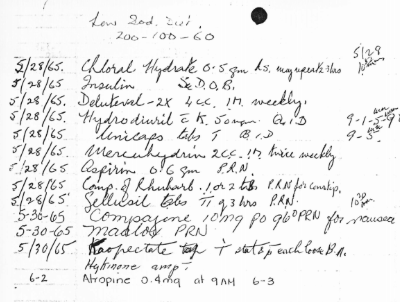 Low Sod. Diet.
200-100-60
5/28/65. Chloral Hydrate 0.5 gm h.s. may repeat x 1 hrs 5/28 10pm
5/28/65. Insulin S.D.O.B.
5/28/65. Deluteval-2X 4cc. I.M. weekly.
5/28/65. Hydrodiuril c K. 50 mgm. B.I.D 9-1-5-9
5/28/65. Unicaps tabs T B.I.D 9-5
5/28/65. Mercuhydrin 2cc. I.M. twice weekly
5/28/65. Aspirin 0.6 gm P.R.N.
5/28/65. Comp. of Rhubarb. 1 or 2 tbs P.R.N for constip.
5/28/65. Gellusil tabs TT q 3 hrs P.R.N. 10pm
5-30-65 Compazine 10 mg po q6° PRN for nausea
5-30-65 Maalox PRN
5/30/65 Kaopectate T stat & p each loose B.M.
Hykinone amp T
6-2 Atropine 0.4mg at 9AM 6-3